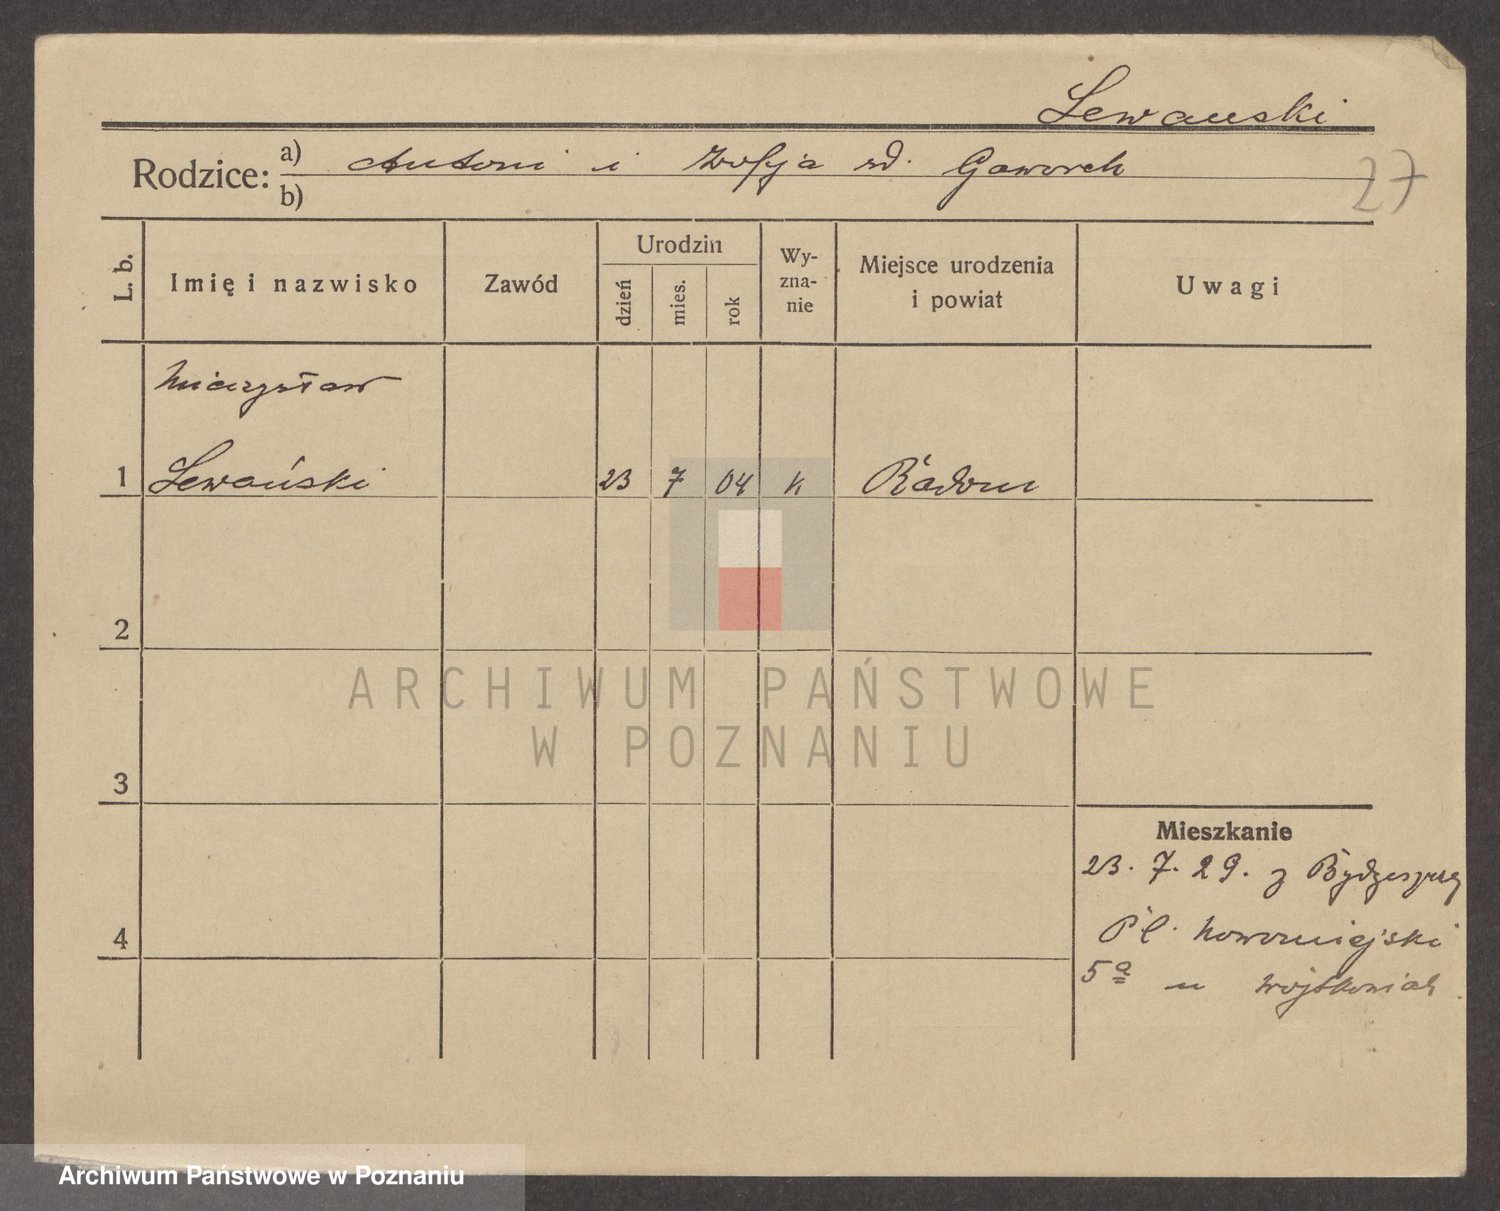 Lewański
Rodzice: a) Antoni i Zofja zd. Gaworek
b)
27
L. b.
Imię i nazwisko
Zawód
Urodzin
dzień
mies.
rok
Wy-
zna-
nie
Miejsce urodzenia
i powiat
Uwagi
Mieczysław
1 Lewański 23 7 04 k Radom
2
ARCHIWUM PAŃSTWOWE
W POZNANIU
3
Mieszkanie
23. 7. 29. z Bydgoszczy
4
Pl. Nowomiejski
5a u
Archiwum Państwowe w Poznaniu